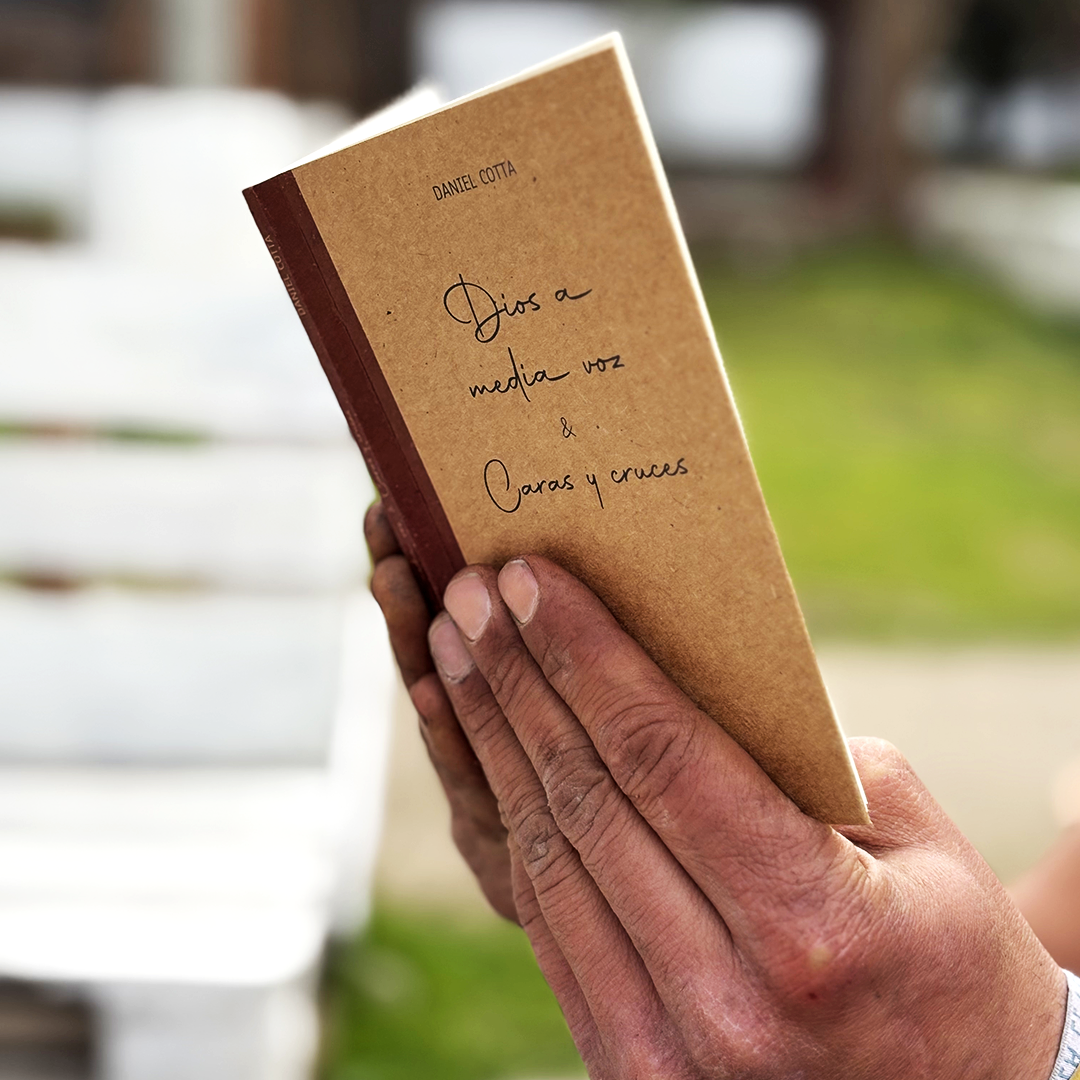 DANIEL COTTA
Dios a
media voz
&
Caras y cruces
DANIEL COTTA